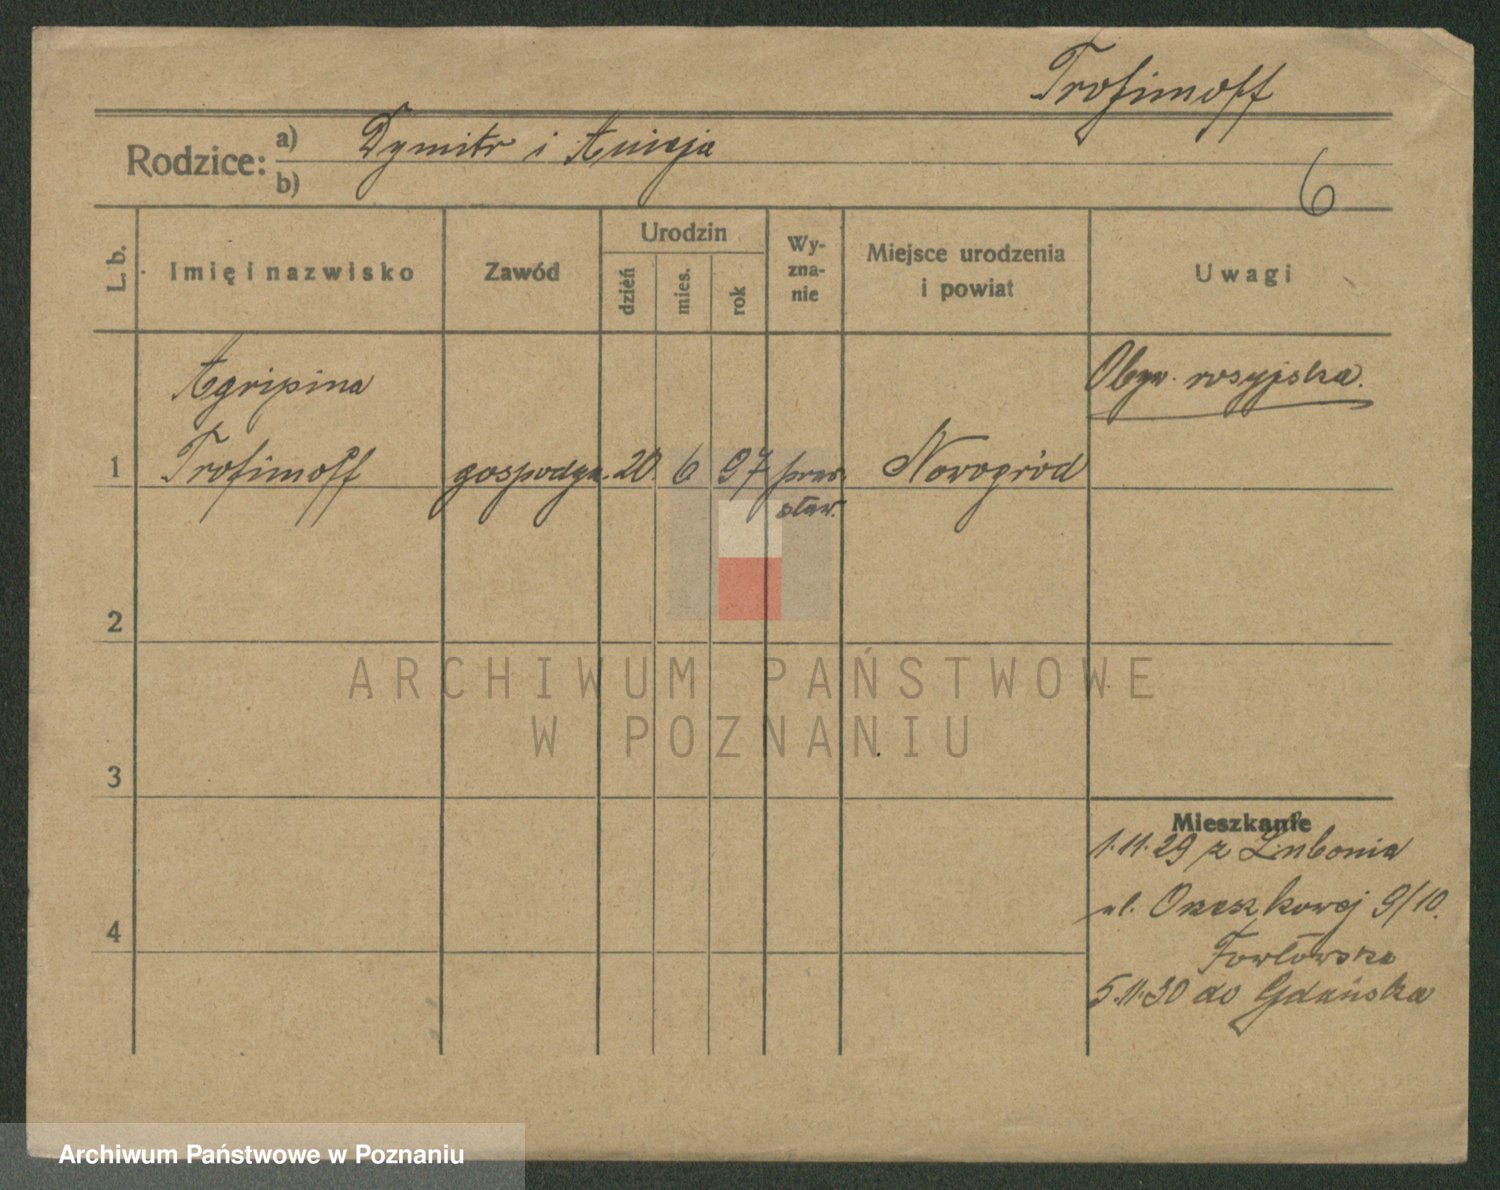 Trofimoff
Rodzice: a) Dymitr i Anieja
b)
6
L. b.
Imię i nazwisko
Zawód
Urodzin
dzień
mies.
rok
Wy-
zna-
nie
Miejsce urodzenia
i powiat
Uwagi
Agripina
Obyw. rosyjska.
1 Trofimoff gospodyn. 20. 6 97 praw. Nowogród
sław.
2
ARCHIWUM PAŃSTWOWE
W POZNANIU
3
Mieszkanie
1.11.29 z Lubonia
ul. Orzeszkowej 9/10.
4
5.11.30 do Gdańska
Archiwum Państwowe w Poznaniu